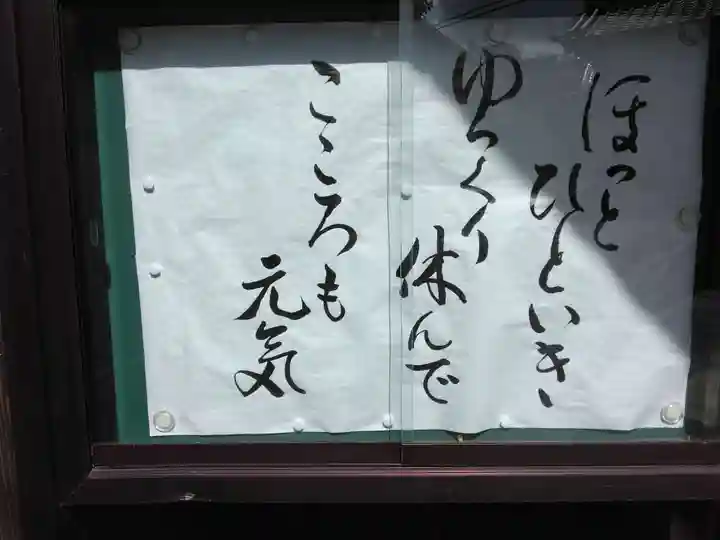 ほっと
ひといき
ゆっくり
休んで
こころも
元気